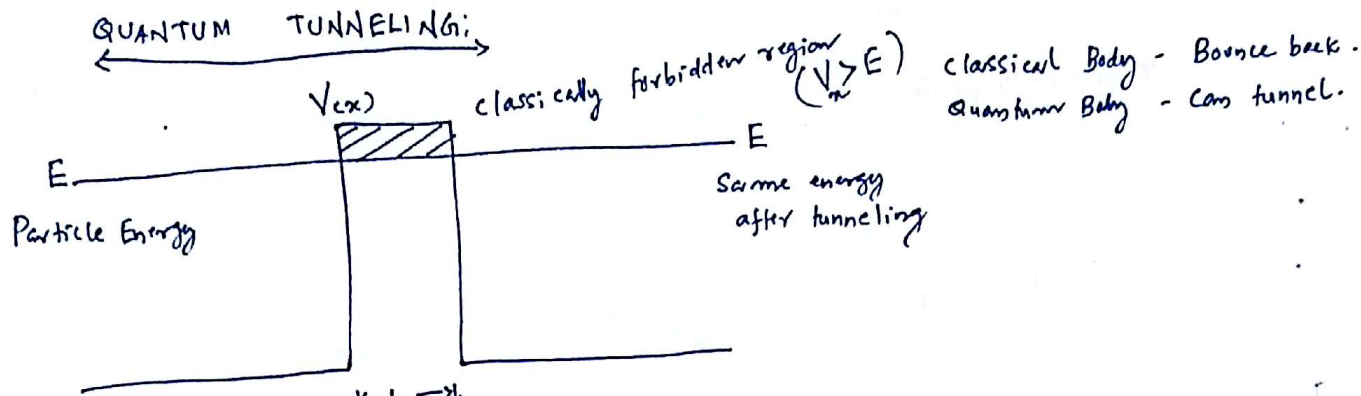 QUANTUM TUNNELING:
classically forbidden region (Vₓ > E)
Classical Body - Bounce back.
Quantum Body - Can tunnel.
V(x)
E
E
Particle Energy
Same energy
after tunneling